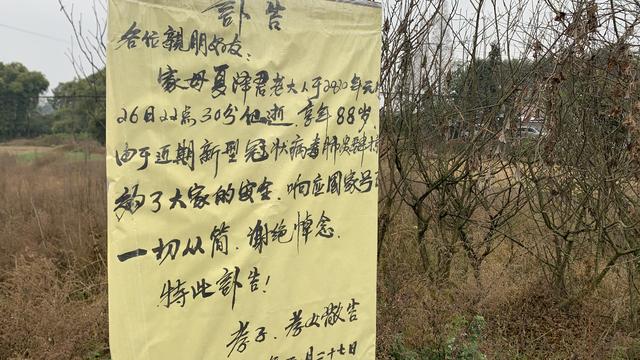 讣告
各位亲朋好友:
家母夏泽君老大人于2020年元月
26日22点30分仙逝 享年88岁
由于近期新型冠状病毒肺炎
为了大家的安全.响应国家号
一切从简.谢绝悼念.
特此讣告!
孝子.孝女敬告
月二十七日